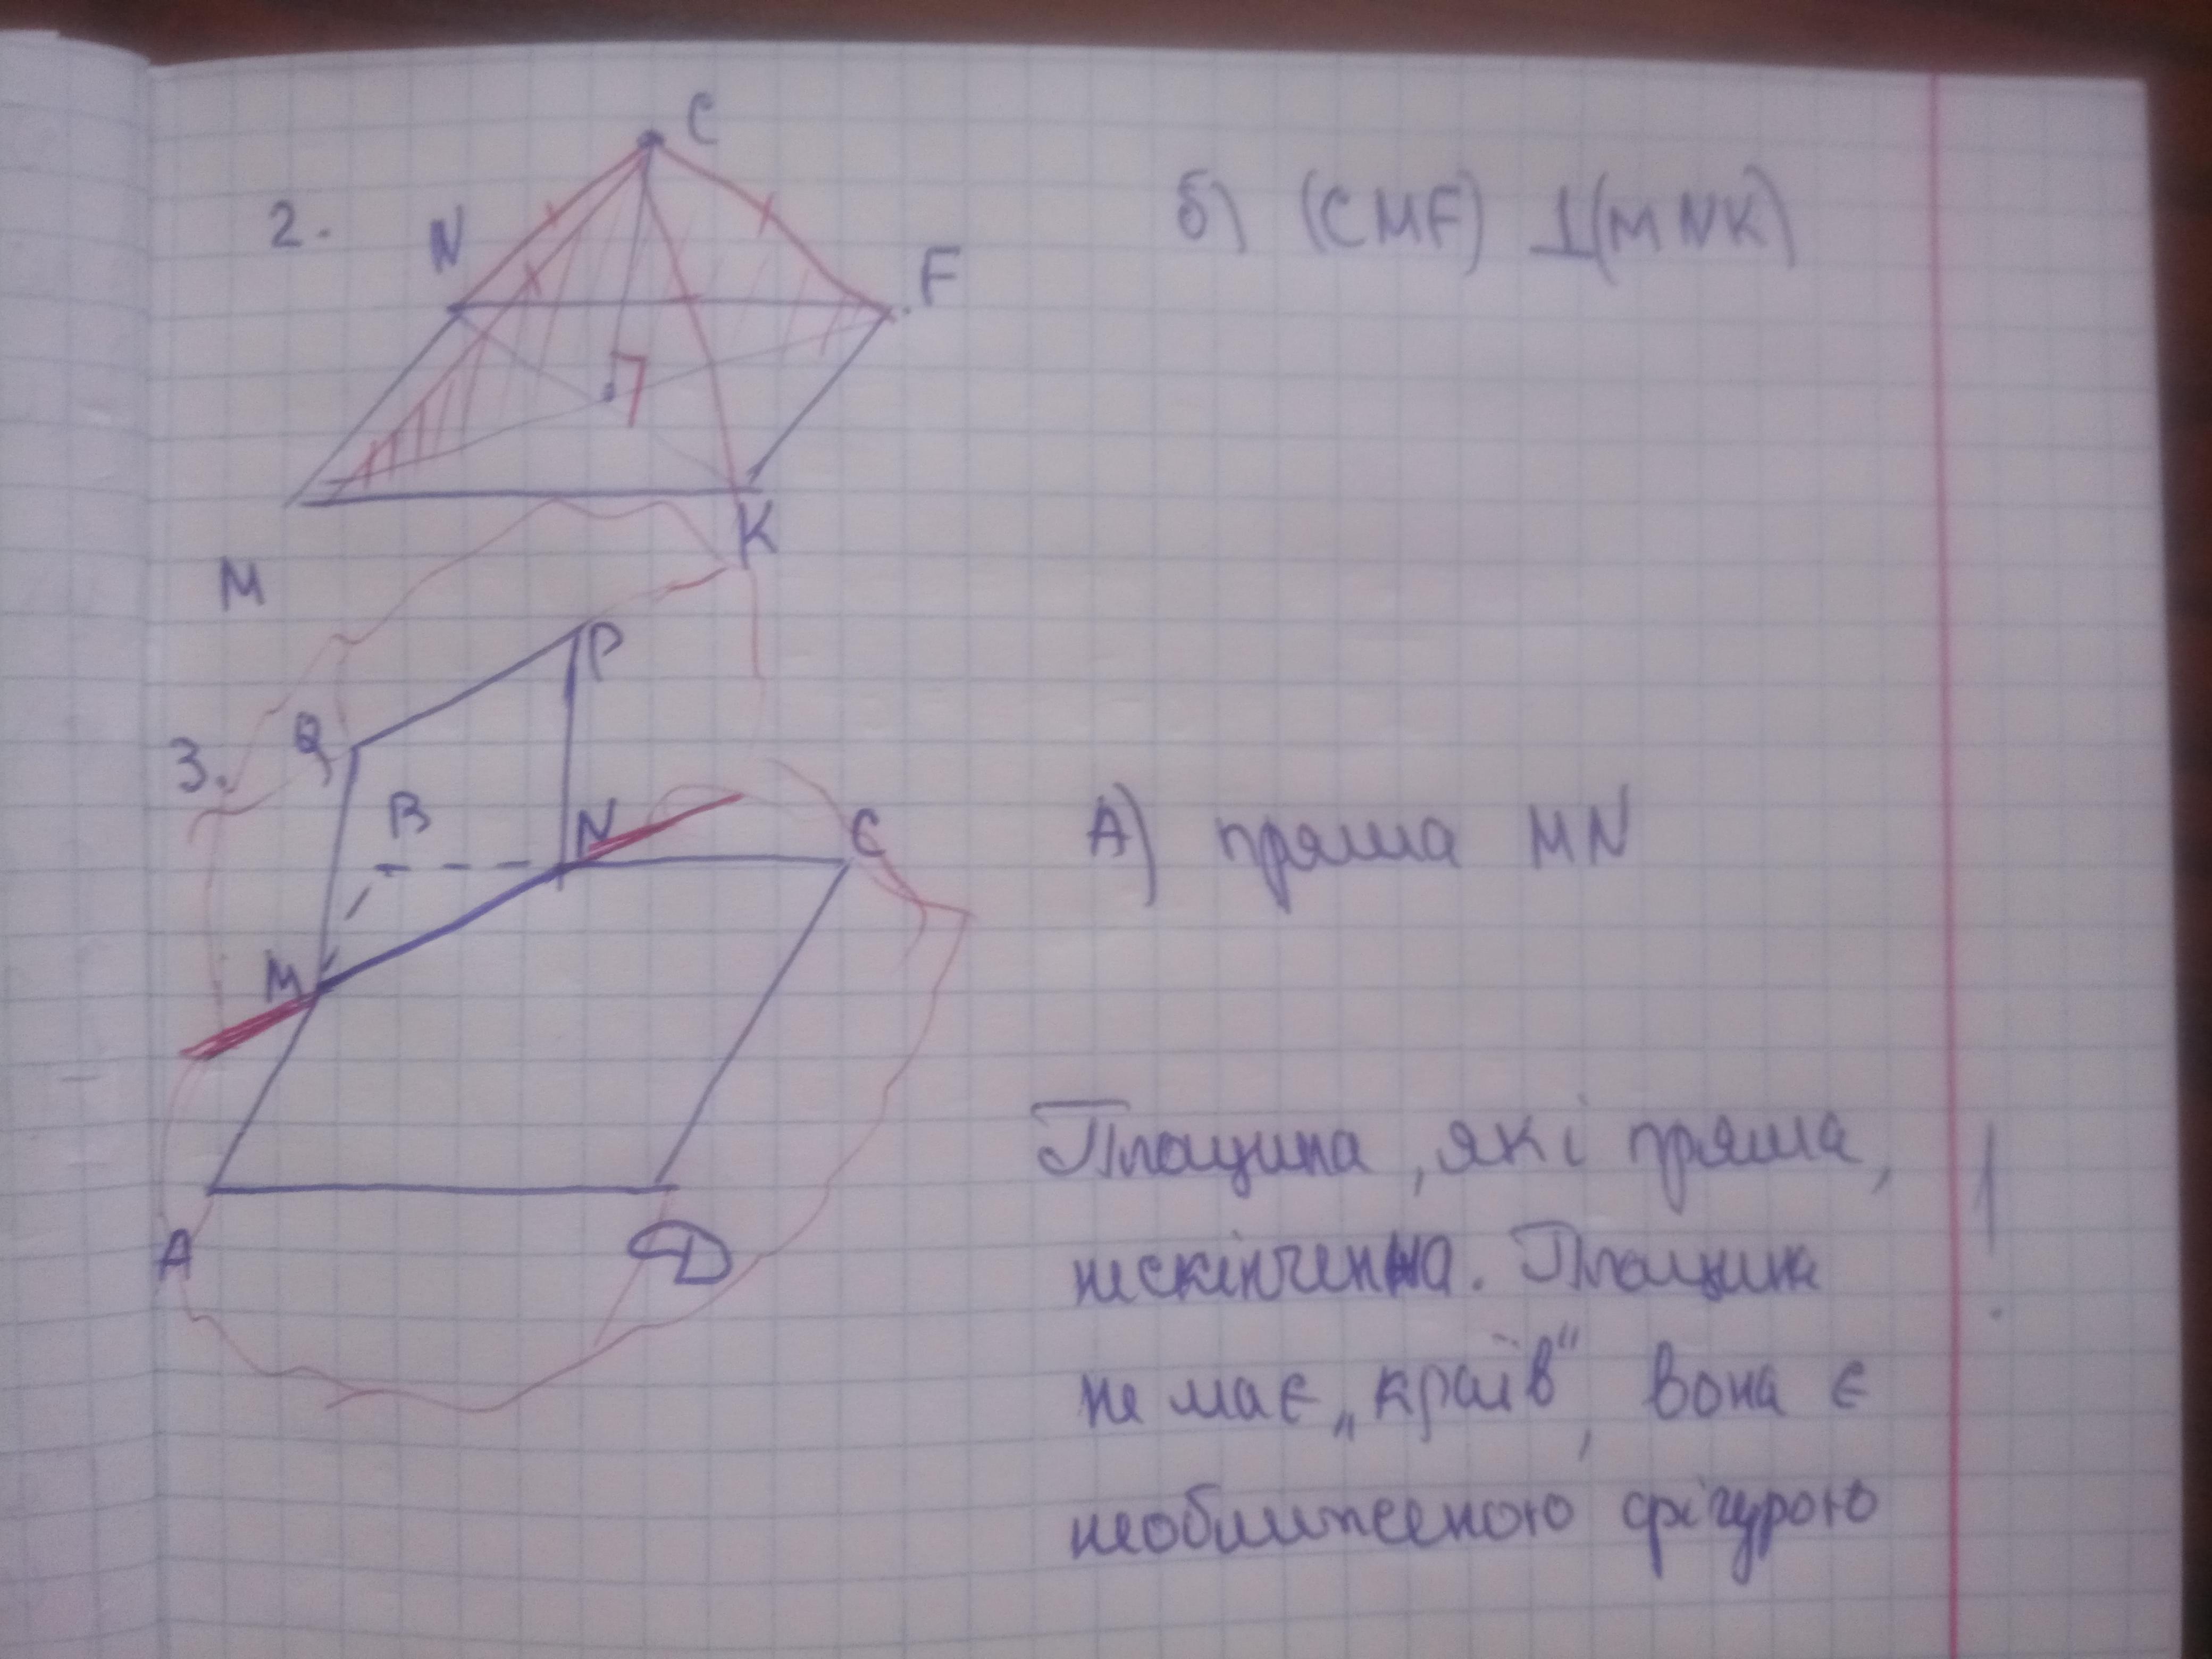 C
2.
N
F
б) (CMF) ⊥(MNK)
K
M
P
Q
3.
B
N
C
А) пряма MN
M
A
D
Площина, як і пряма, !
нескінченна. Площина
не має „країв“, вона є
необмеженою фігурою